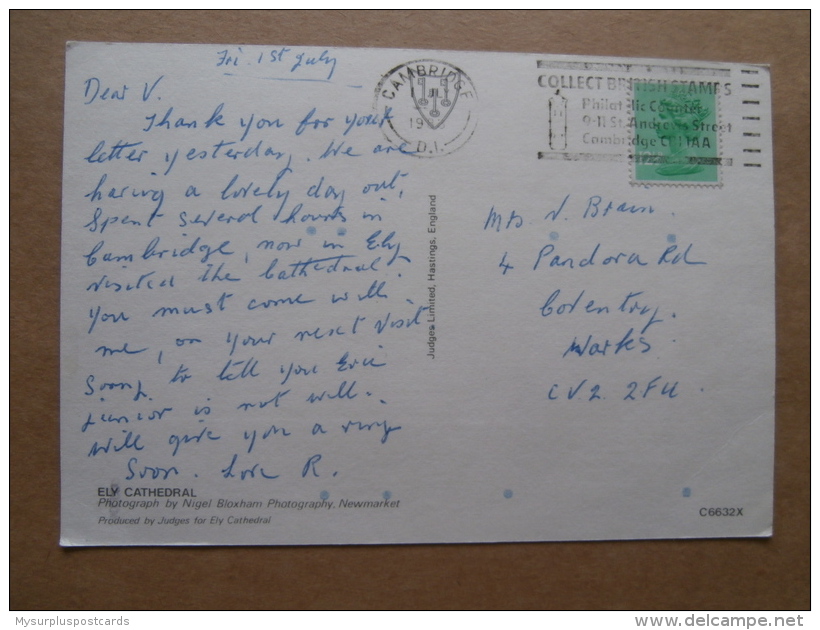 Fri. 1st July
Dear V.
Thank you for your
letter yesterday. We are
having a lovely day out,
Spent several hours in
Cambridge, now in Ely
visited the Cathedral.
You must come with
me, on your next visit
Soon, to tell you Eric
junior is not well..
will give you a ring
Soon. Love R.
ELY CATHEDRAL
Photograph by Nigel Bloxham Photography, Newmarket
Produced by Judges for Ely Cathedral
Judges Limited, Hastings, England
CAMBRIDGE
JLY
19
D.I.
COLLECT BRITISH STAMPS
Philatelic Counter
9-11 St. Andrews Street
Cambridge CB1 1AA
Mrs V. Brain.
4 Pandora Rd
Coventry.
Warks.
CV2 2FU.
C6632X
Mysurpluspostcards
www.delcampe.net